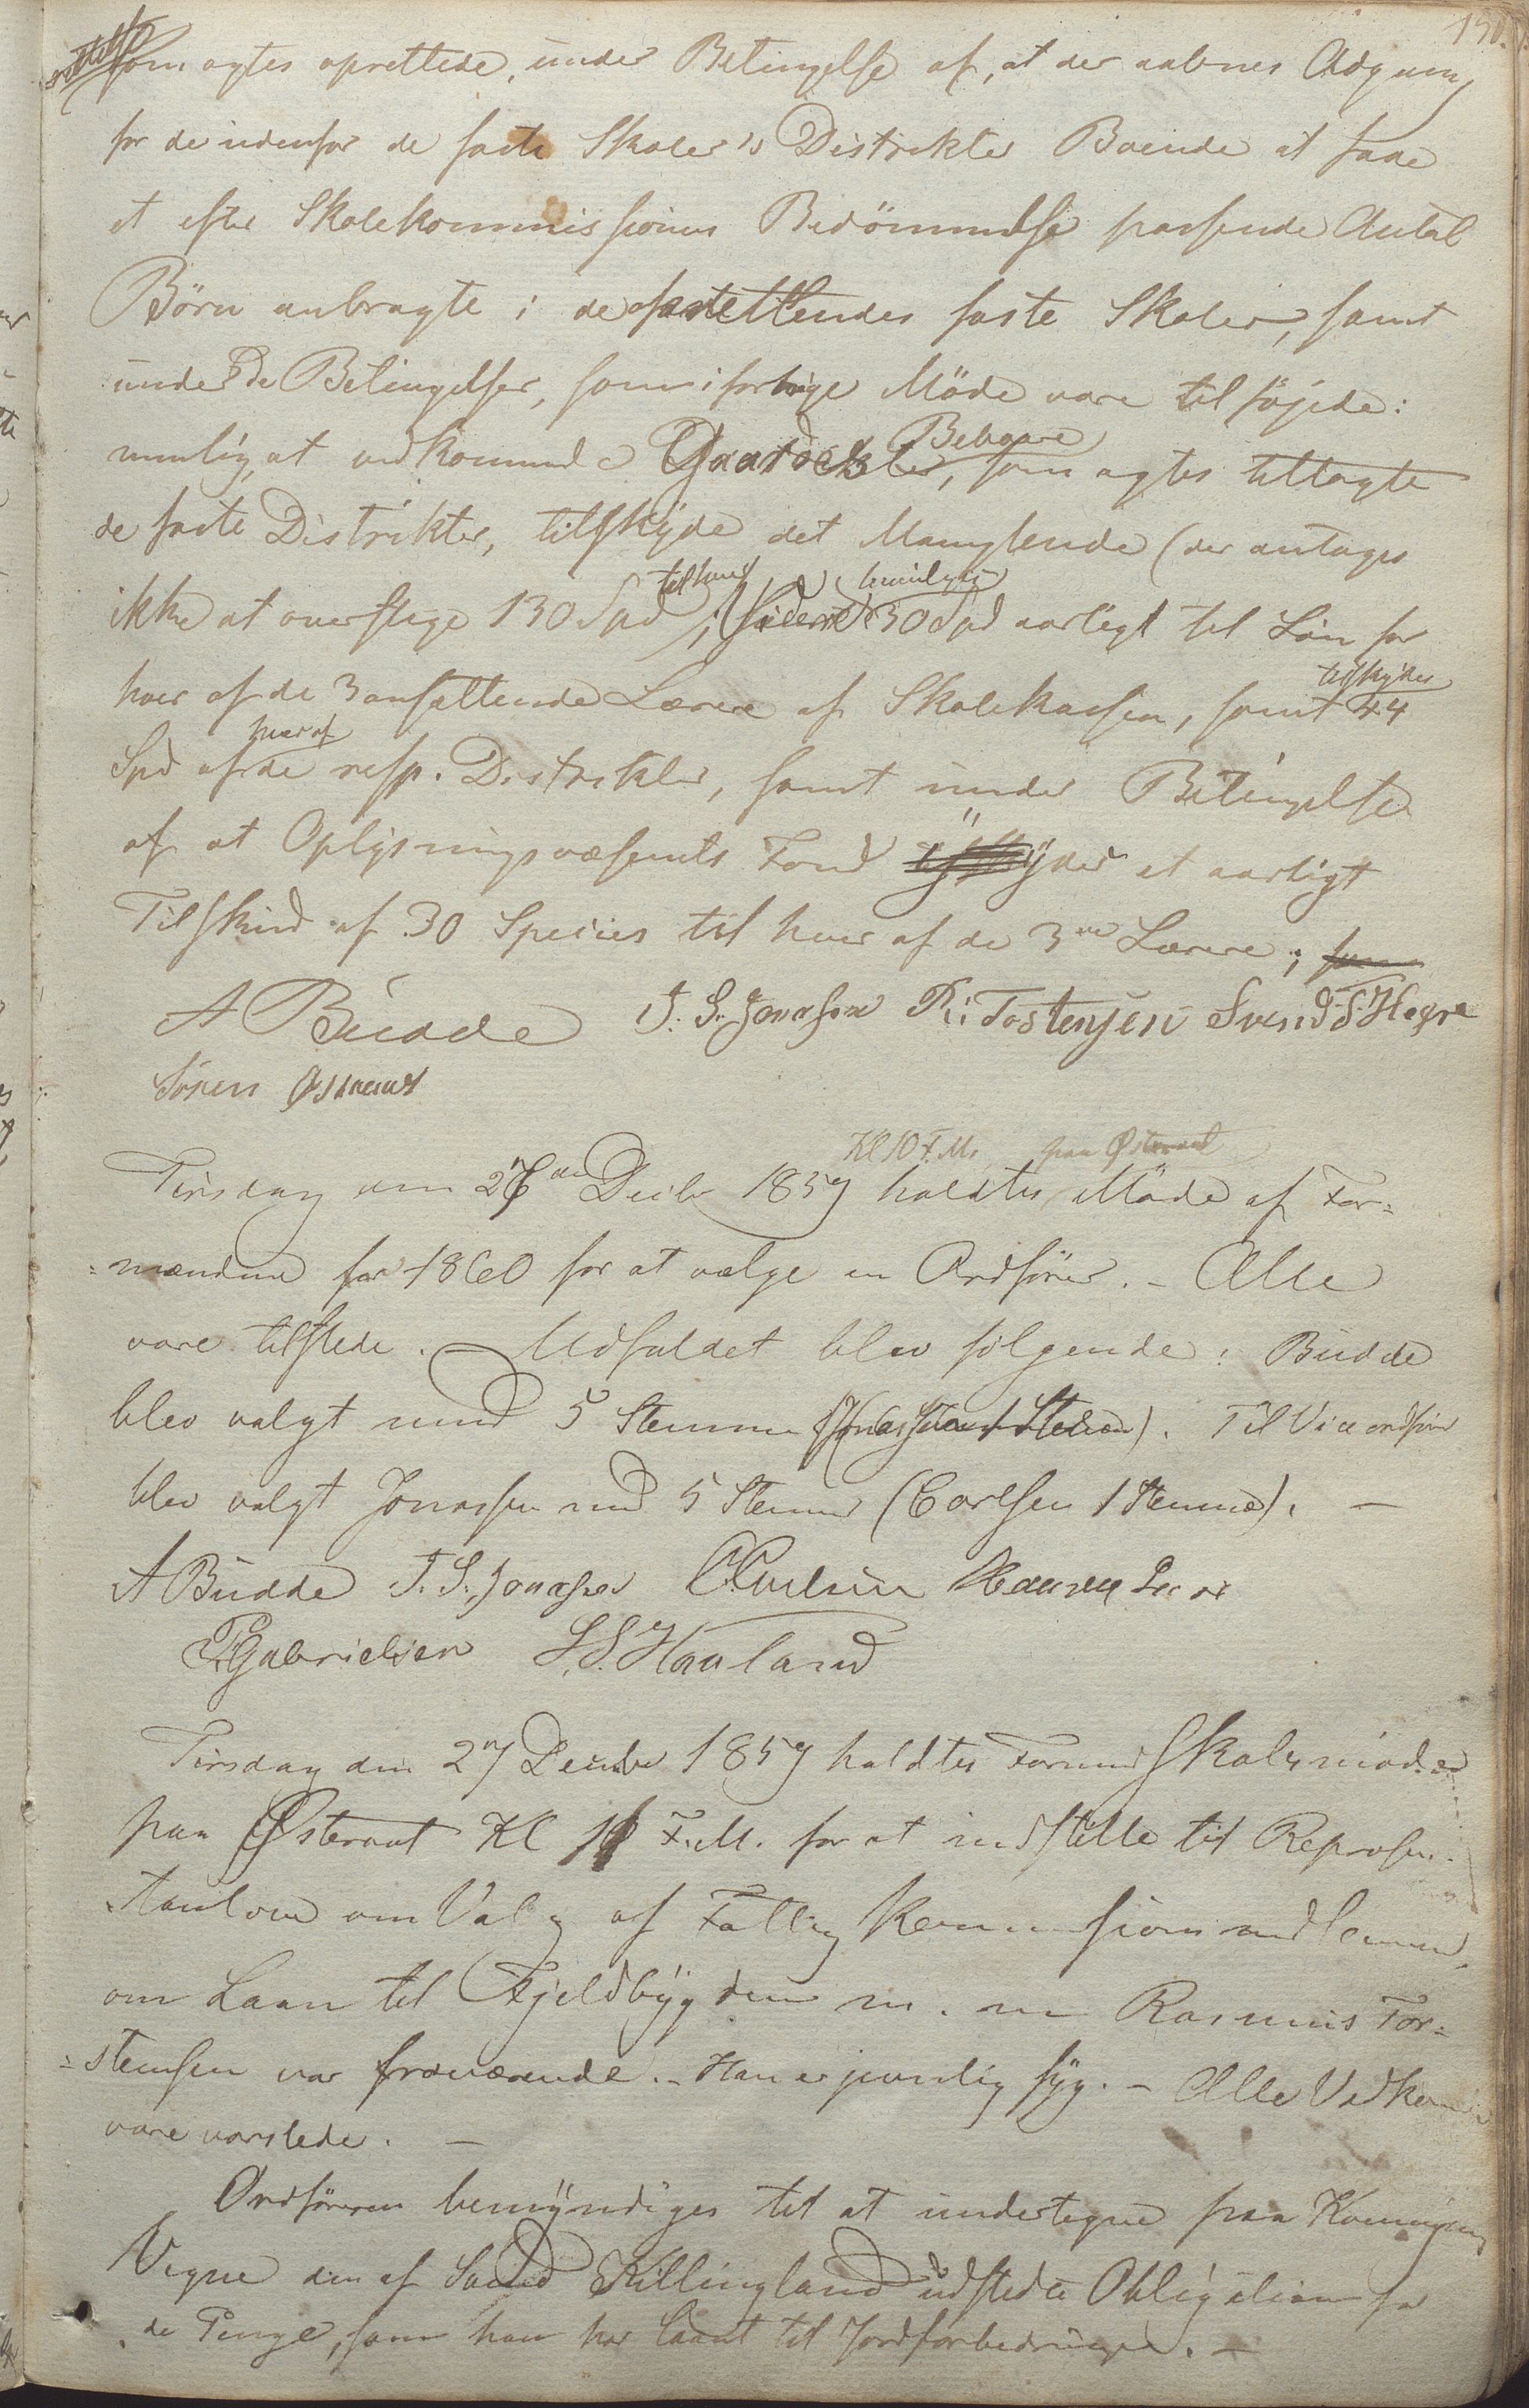 150.
som agtes oprettede, under Betingelse af, at der aabnes Adgang
for de udenfor de faste Skoler's Distrikter Boende at faae
et efter Skolekommissionens Bedömmelse passende Antal
Börn anbragte i de faste Skoler, samt
under de Betingelser, som i forrige Möde vare tilföjede:
nemlig, at vedkommende Beboere, som agtes tillagte
de faste Distrikter, tilskyde det Manglende (der antages
ikke at overstige 130 Spd 30 Spd aarligt til Lön for
tilskydes
hver af de 3 ansættende Lærere af Skolekassen, samt 44
hver af
Spd af de resp. Distrikter, samt under Betingelse
af at Oplysningsvæsenets Fond yder et aarligt
Tilskud af 30 Species til hver af de 3de Lærere;
A Budde J. S. Jonassen R: Tostensen Svend S Hogre
Sören Østraat
Kl 10 F.M. paa Østeraat
Tirsdag den 27de Decbr 1859 holdtes Möde af For=
=mændene for 1860 for at vælge en Ordförer. - Alle
vare tilstede. - Udfaldet blev fölgende: Budde
blev valgt med 5 Stemmer. Til Viceordförer
blev valgt Jonassen med 5 Stemmer (Carlsen 1 Stemme). -
A Budde J. S. Jonassen
P. Gabrielsen S. S. Haaland
Tirsdag den 27 Decbr 1859 holdtes Formandskabsmöde
paa Østeraat Kl F.M. for at indstille til Repræsen-
tanterne om Valg af Fattigkommissionsmedlemmer,
om Laan til Fjeldbygden m. m Rasmus Tor=
=stensen var fraværende. - Han er jevnlig syg. - Alle Vedkom
vare varslede. -
Ordföreren bemyndiges til at undertegne paa Kommunens
Vegne den af Svend Killingland udstedte Obligation for
de Penge, som han har laant til Jordforbedringer. -